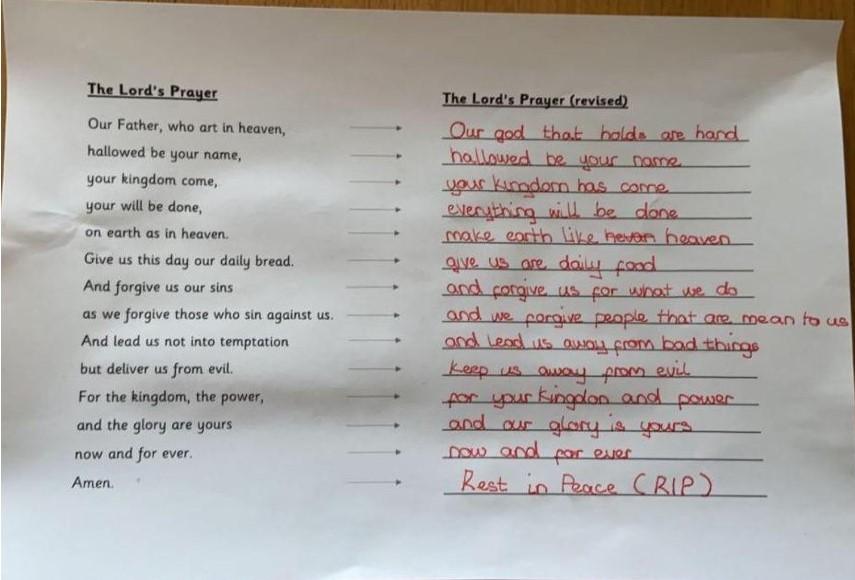 The Lord's Prayer
Our Father, who art in heaven,
hallowed be your name,
your kingdom come,
your will be done,
on earth as in heaven.
Give us this day our daily bread.
And forgive us our sins
as we forgive those who sin against us.
And lead us not into temptation
but deliver us from evil.
For the kingdom, the power,
and the glory are yours
now and for ever.
Amen.
The Lord's Prayer (revised)
Our god that holds are hand
hallowed be your name
your kingdom has come
everything will be done
make earth like hevan heaven
give us are daily food
and forgive us for what we do
and we forgive people that are mean to us
and lead us away from bad things
keep us away from evil
for your kingdon and power
and our glory is yours
now and for ever
Rest in Peace (RIP)